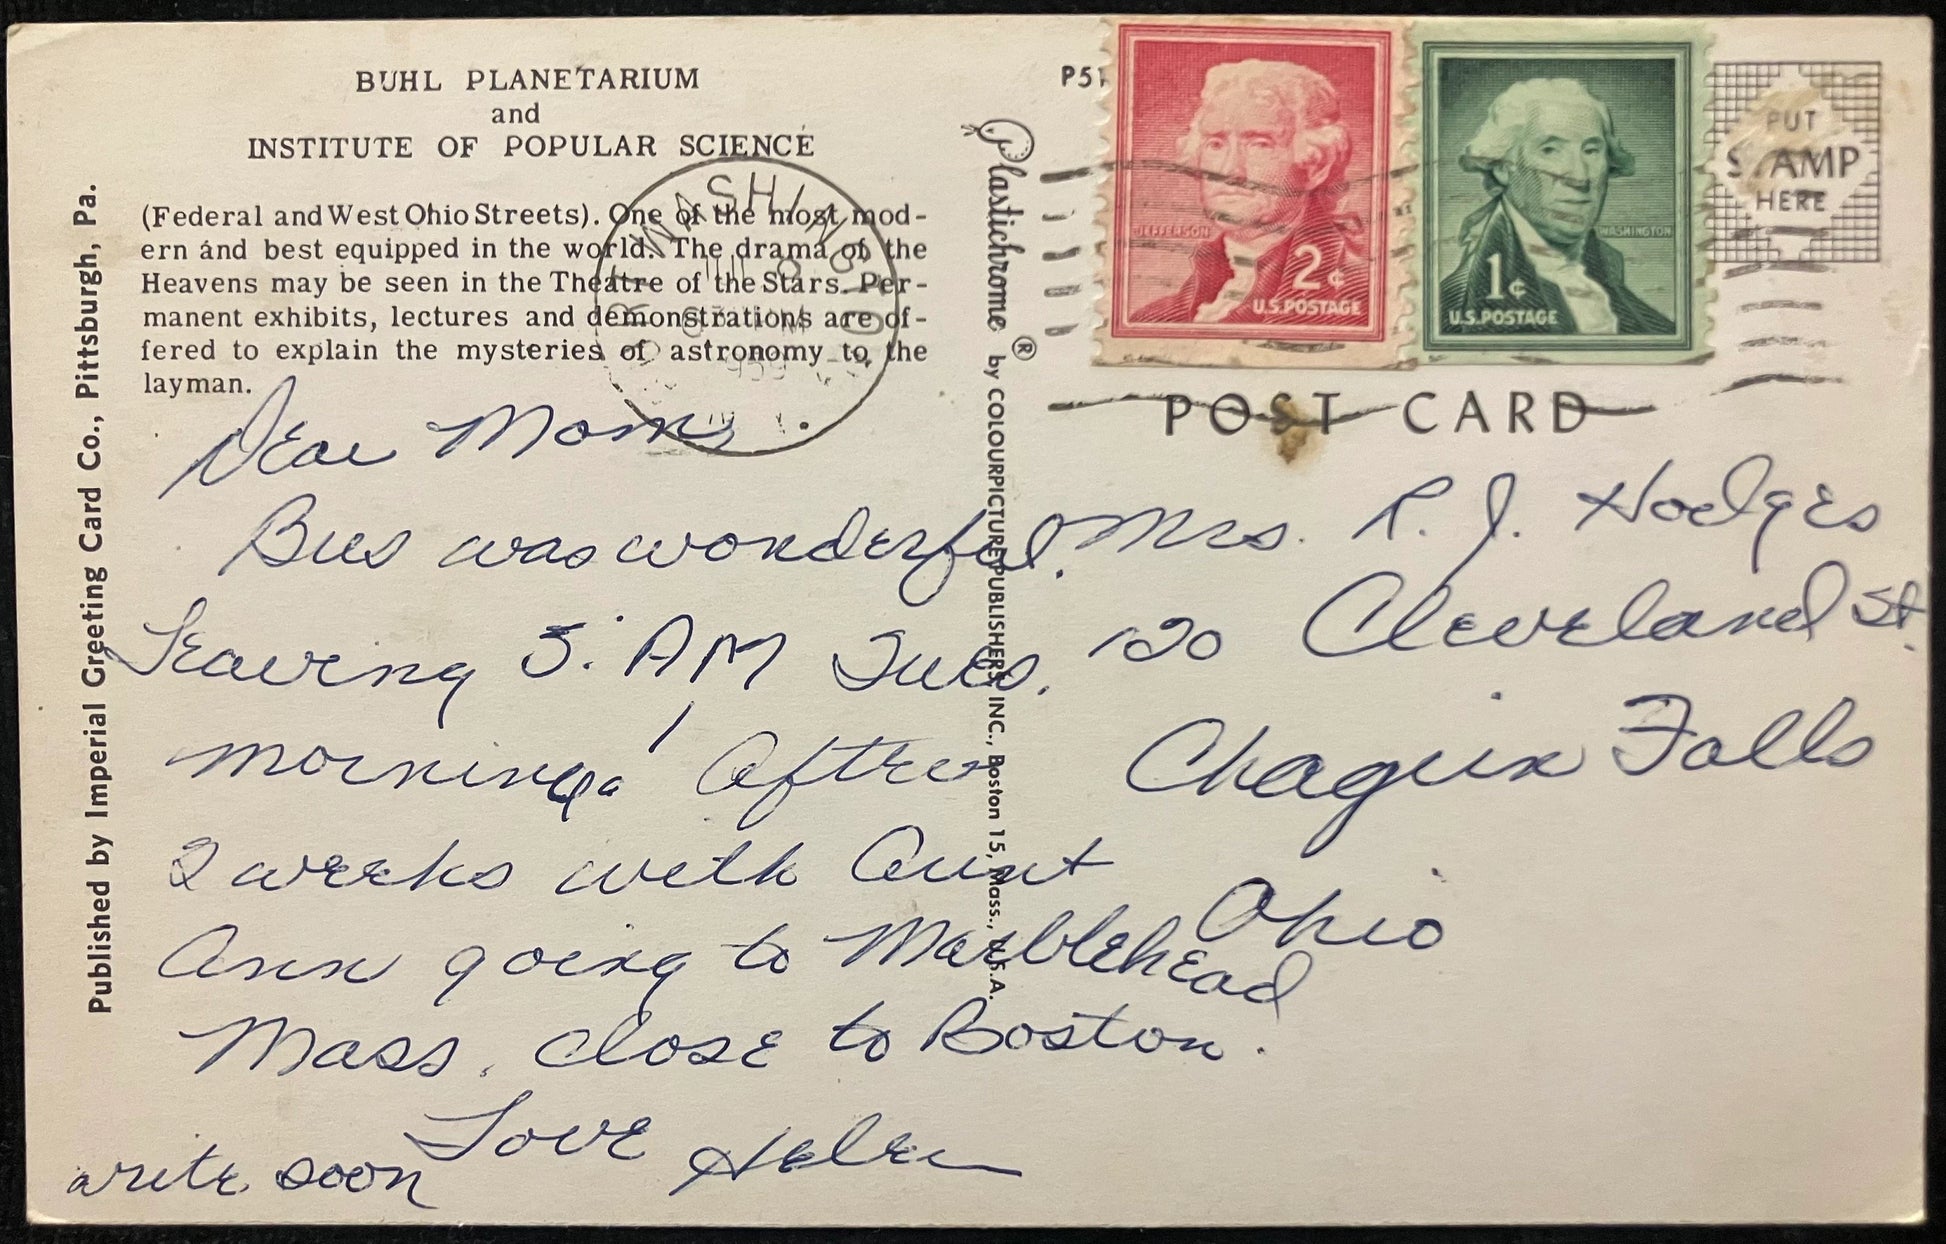 BUHL PLANETARIUM
and
INSTITUTE OF POPULAR SCIENCE
(Federal and West Ohio Streets). One of the most mod-
ern and best equipped in the world. The drama of the
Heavens may be seen in the Theatre of the Stars. Per-
manent exhibits, lectures and demonstrations are of-
fered to explain the mysteries of astronomy to the
layman.
Published by Imperial Greeting Card Co., Pittsburgh, Pa.
Dear Mom,
Bus was wonderful.
Leaving 5: AM Tues.
morning. After
2 weeks with Aunt
Ann going to Marblehead
Mass. close to Boston.
Love Helen
write soon
Plastichrome ® by COLOURPICTURE PUBLISHERS, INC., Boston 15, Mass., U.S.A.
P51
JEFFERSON
2¢
U.S. POSTAGE
WASHINGTON
1¢
U.S. POSTAGE
PUT
STAMP
HERE
POST CARD
Mrs. R. J. Hodges
120 Cleveland St.
Chagrin Falls
Ohio